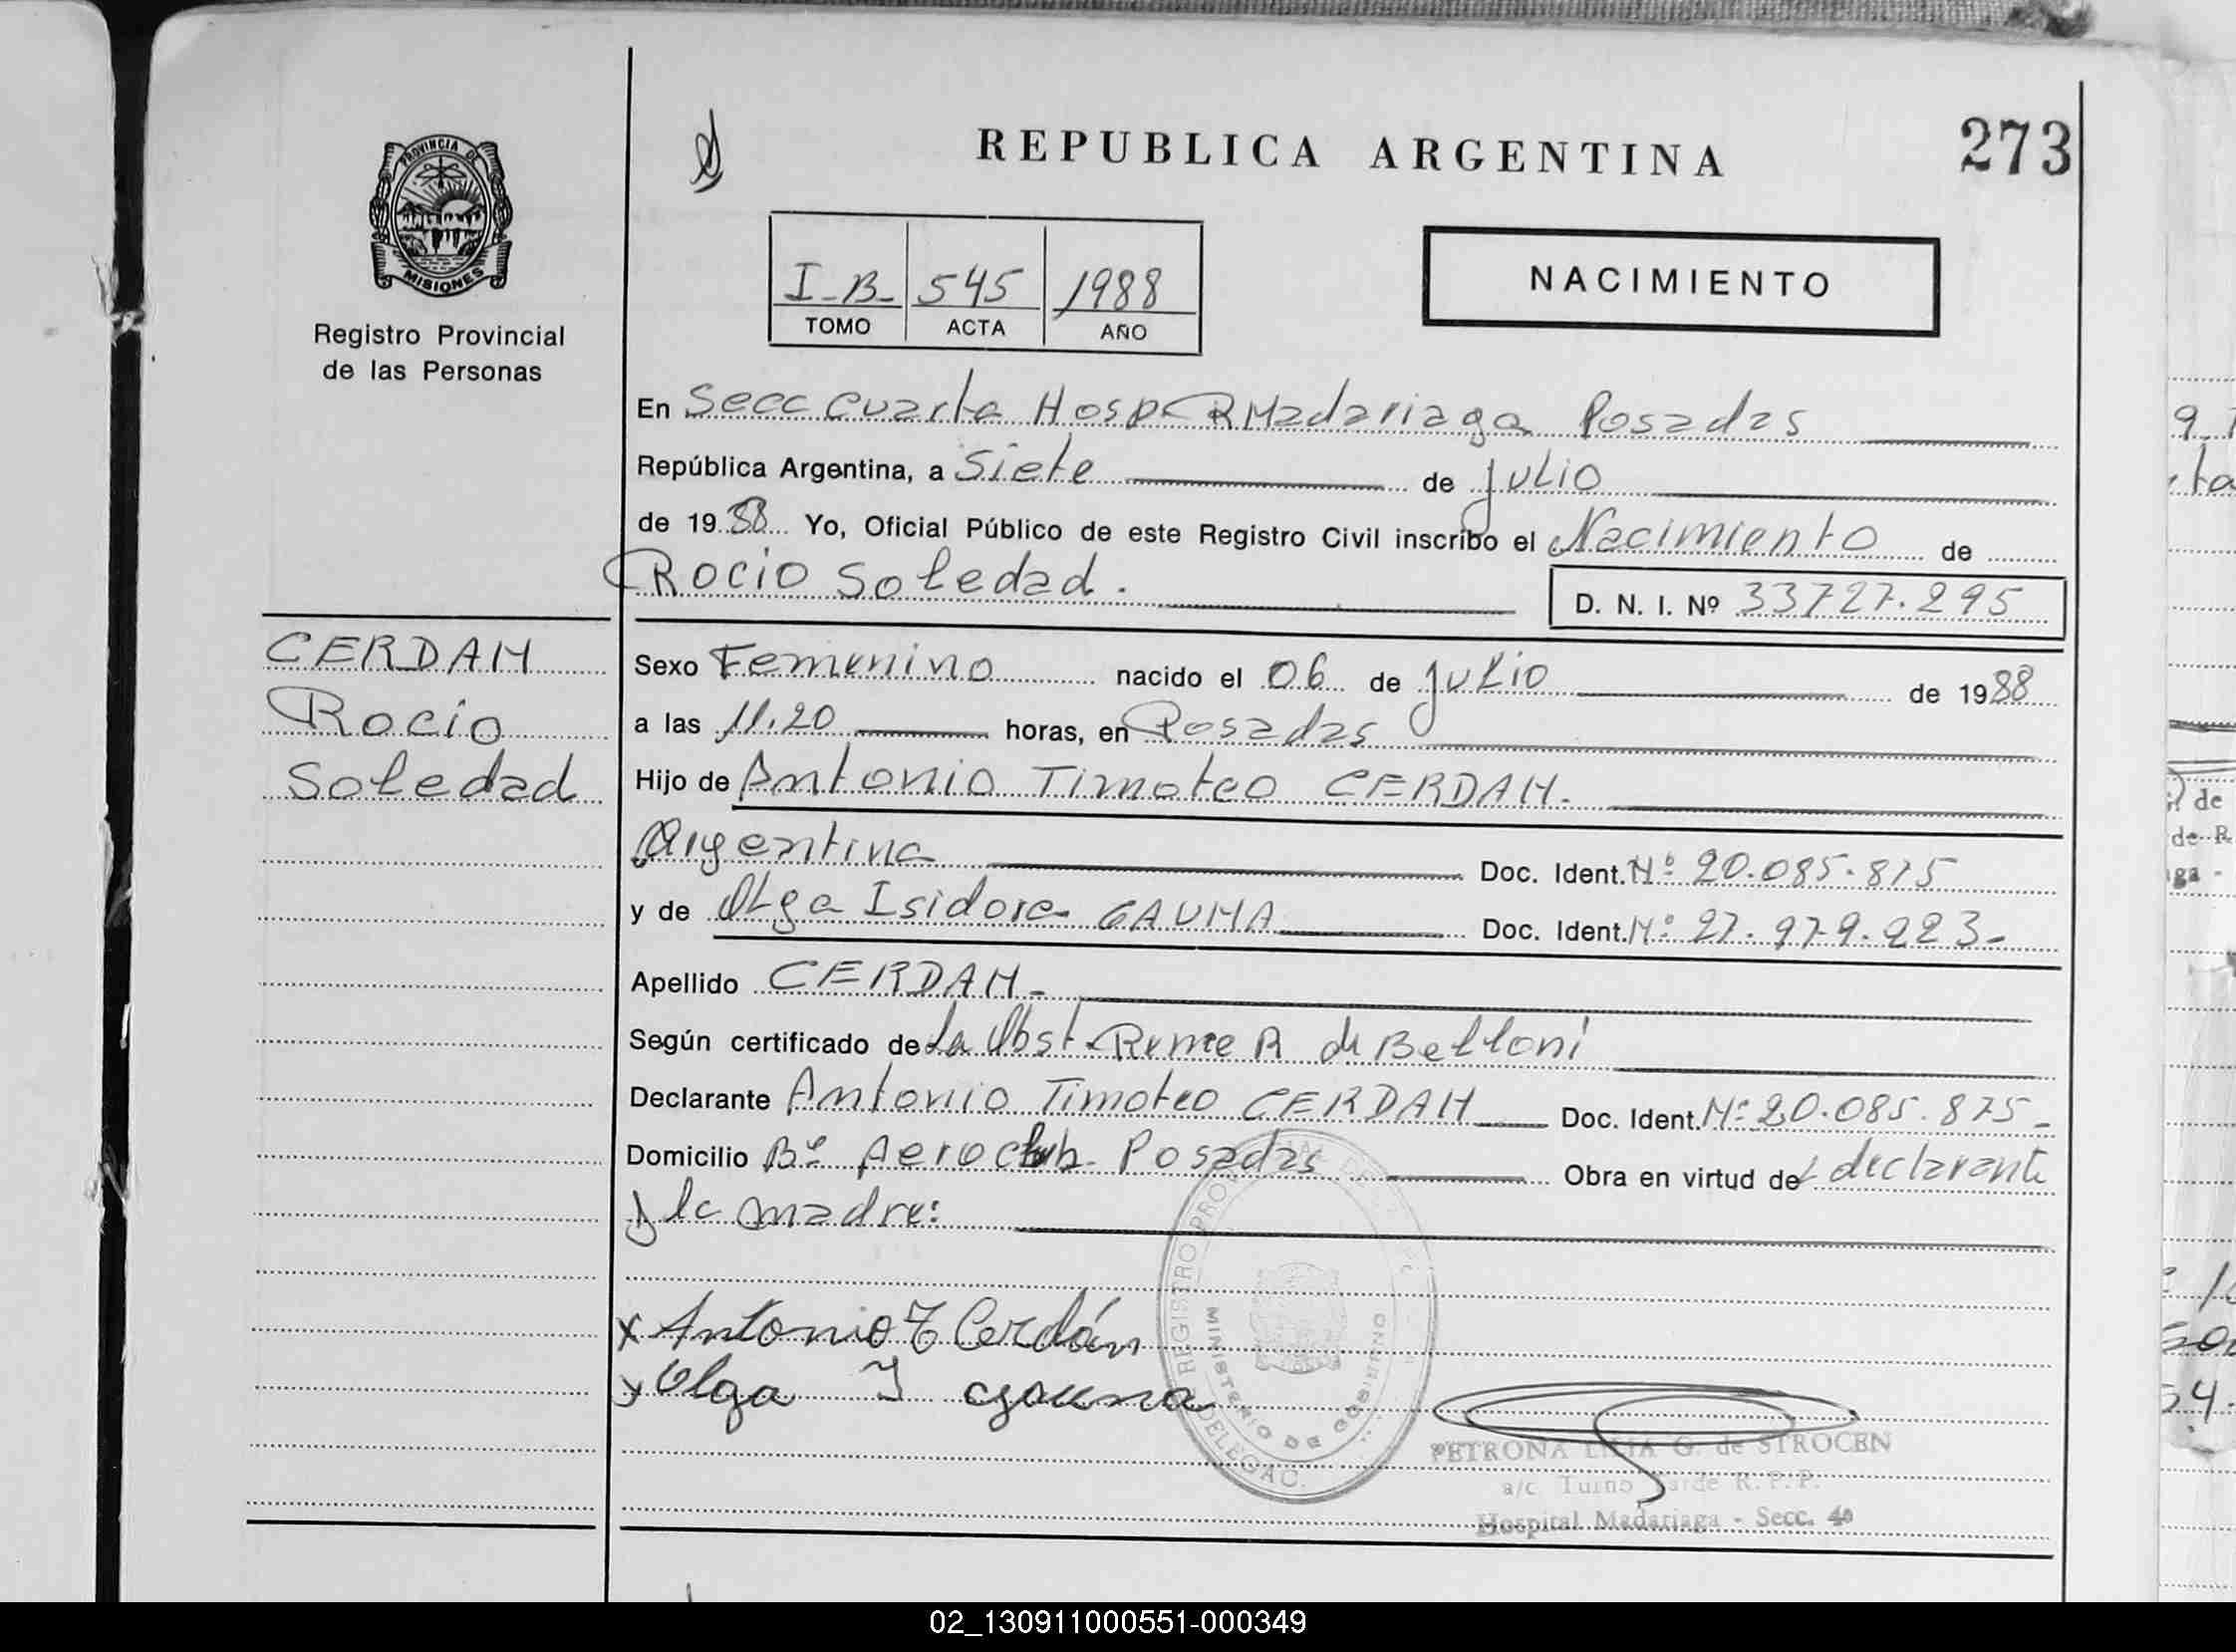 REPUBLICA ARGENTINA
273
PROVINCIA DE
MISIONES
Registro Provincial
de las Personas
I-B- 545 1988
TOMO ACTA AÑO
NACIMIENTO
En Secc cuarta Hosp R Madariaga Posadas
República Argentina, a Siete de julio
de 1988 Yo, Oficial Público de este Registro Civil inscribo el Nacimiento de
Rocio Soledad.
D. N. I. Nº 33727.295
CERDAN
Rocio
Soledad
Sexo Femenino nacido el 06 de julio de 1988
a las 11.20 horas, en Posadas
Hijo de Antonio Timoteo CERDAN.
Argentina Doc. Ident. Nº 20.085.875
y de Olga Isidora GAUNA Doc. Ident. Nº 27.979.223-
Apellido CERDAN-
Según certificado de La Obst. R de Belloni
Declarante Antonio Timoteo CERDAN Doc. Ident. Nº 20.085.875-
Domicilio Bº Aeroclub. Posadas Obra en virtud de declarante
y la madre:
x Antonio T Cerdán
x Olga I gauna
REGISTRO
MINISTERIO DE GOBIERNO
DELEGAC.
PETRONA G. de STROCEN
a/c Turno Tarde R.P.P.
Hospital Madariaga - Secc. 4a
02_130911000551-000349